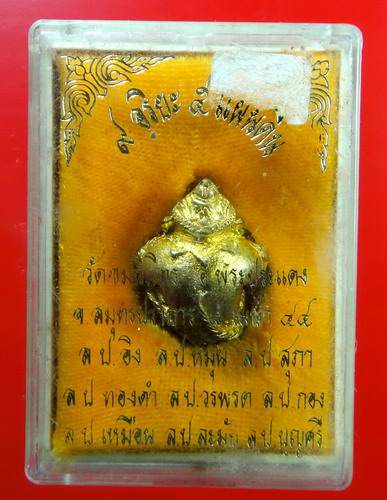 ๙ อริยะ ๕ แผ่นดิน
วัด พระประแดง
จ.สมุทรปราการ ๔๔
ล.ป.อิง ล.ป.หมุน ล.ป.สุภา
ล.ป.ทองดำ ล.ป.วรพรต ล.ป.กอง
ล.ป.เหมือน ล.ป.ละมัย ล.ป.บุญศรี